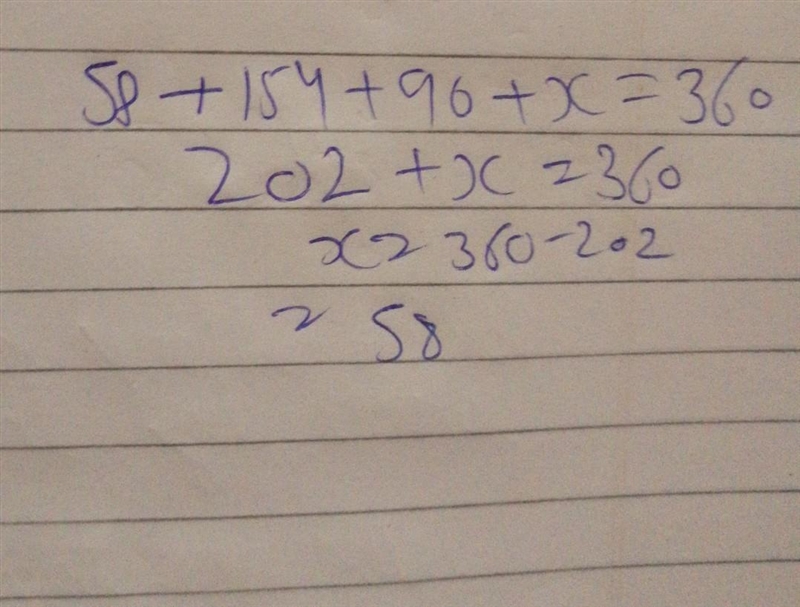 58 + 154 + 90 + x = 360
202 + x = 360
x = 360 - 202
= 58